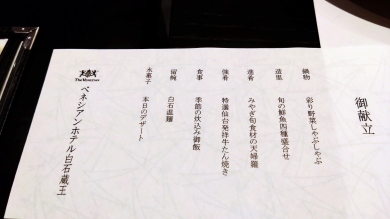 御献立
鍋物 彩り野菜しゃぶしゃぶ
造里 旬の鮮魚四種盛合せ
進肴 みやぎ旬食材の天婦羅
強肴 特選仙台発祥牛たん焼き
食事 季節の炊込み御飯
留椀 白石温麺
水菓子 本日のデザート
ベネシアンホテル白石蔵王